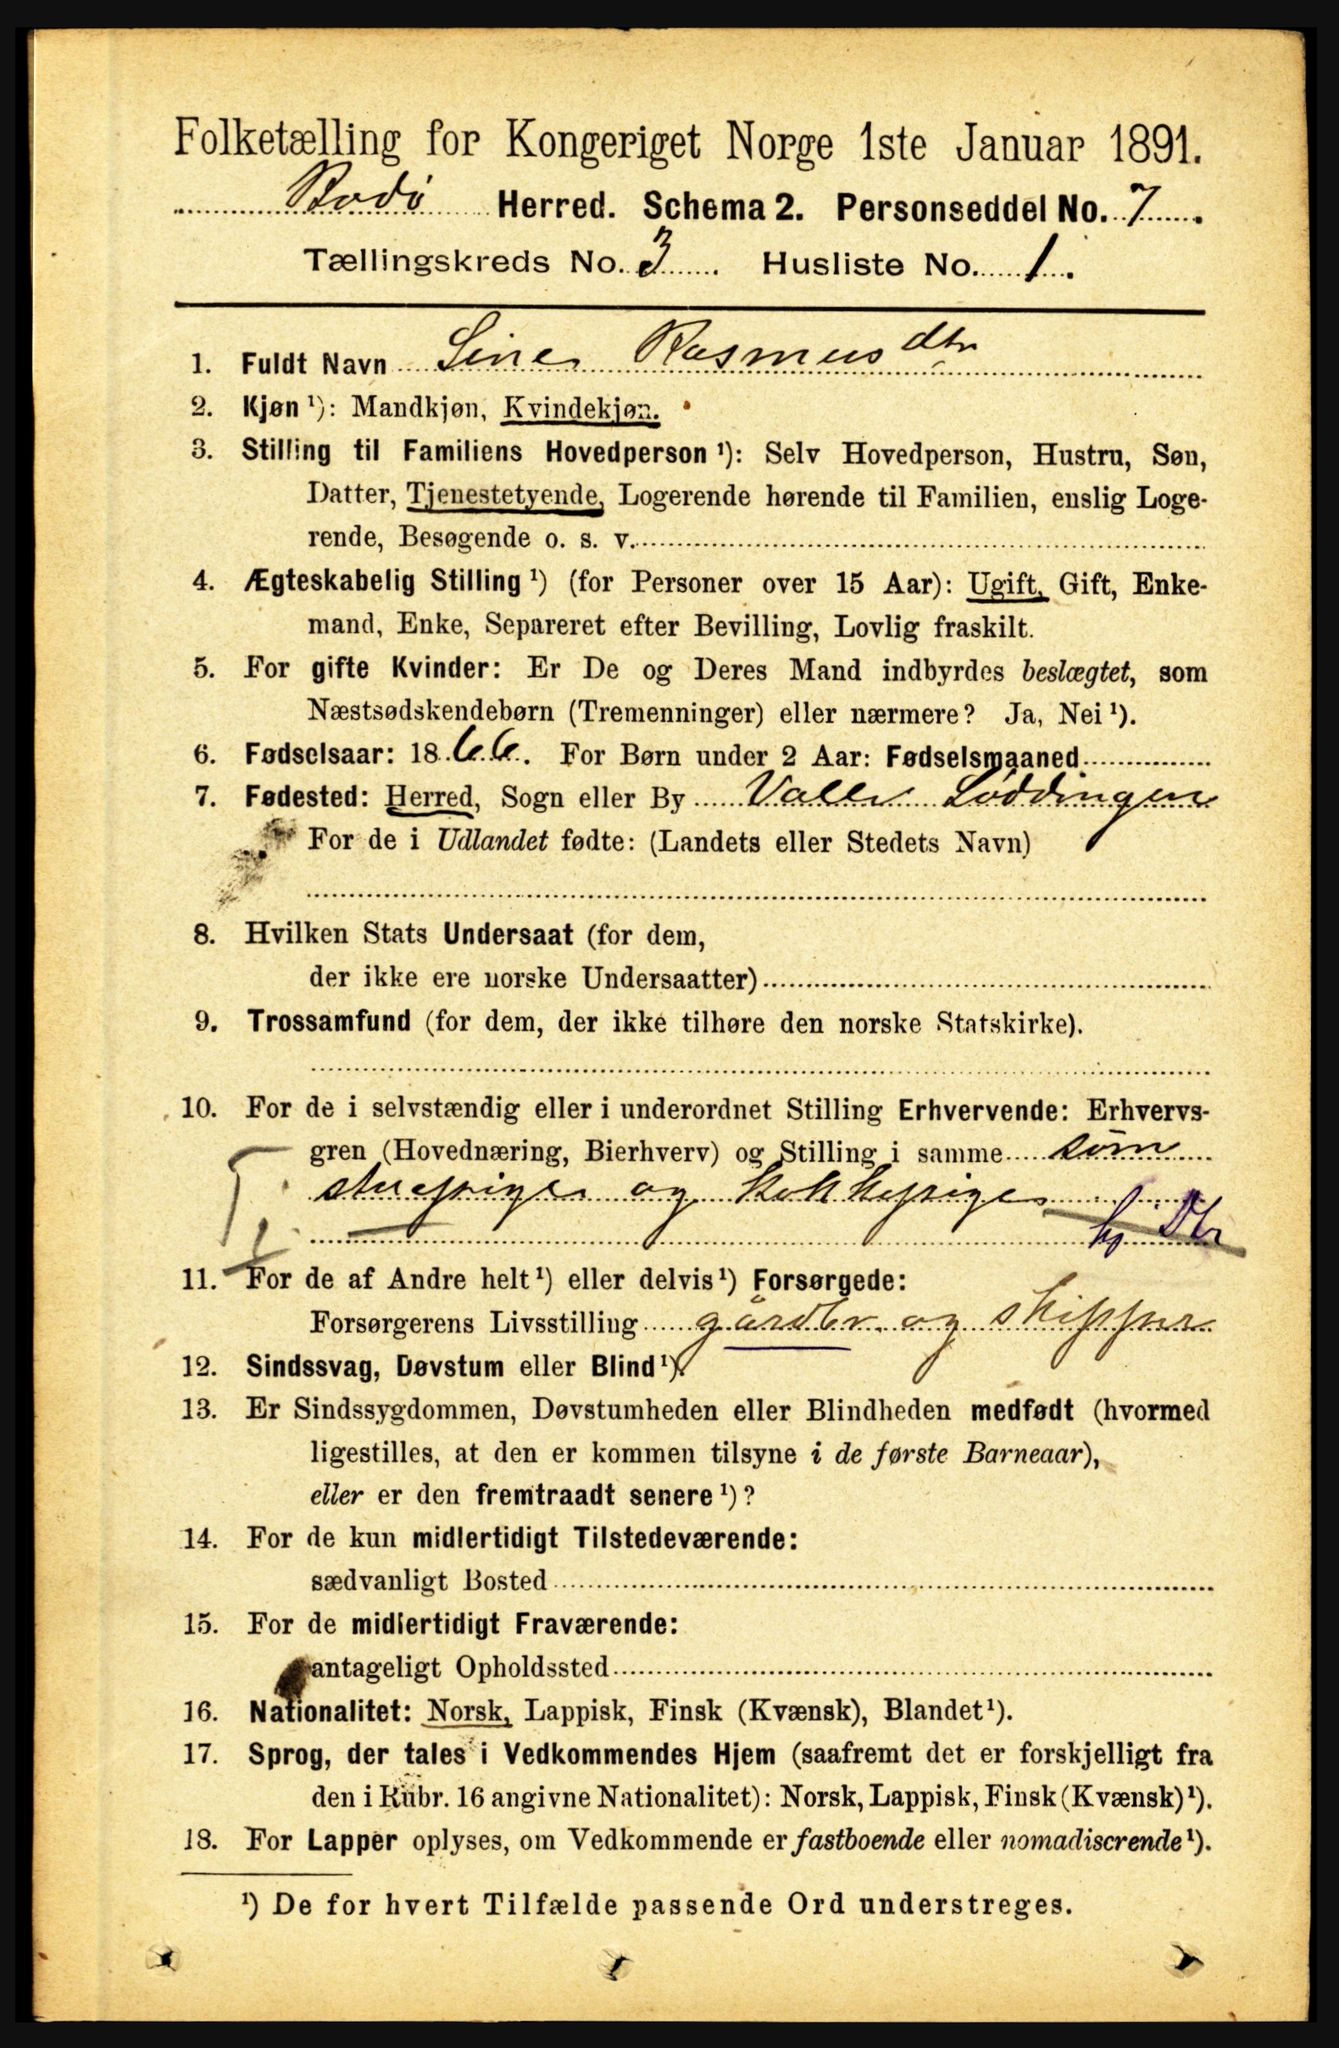 Folketælling for Kongeriget Norge 1ste Januar 1891.
Bodø Herred. Schema 2. Personseddel No. 7.
Tællingskreds No. 3. Husliste No. 1.
1. Fuldt Navn Sine Rasmusdtr
2. Kjøn ¹): Mandkjøn, Kvindekjøn.
3. Stilling til Familiens Hovedperson ¹): Selv Hovedperson, Hustru, Søn,
Datter, Tjenestetyende, Logerende hørende til Familien, enslig Loge-
rende, Besøgende o. s. v.
4. Ægteskabelig Stilling ¹) (for Personer over 15 Aar): Ugift, Gift, Enke-
mand, Enke, Separeret efter Bevilling, Lovlig fraskilt.
5. For gifte Kvinder: Er De og Deres Mand indbyrdes beslægtet, som
Næstsødskendebørn (Tremenninger) eller nærmere? Ja, Nei ¹).
6. Fødselsaar: 1866. For Børn under 2 Aar: Fødselsmaaned
7. Fødested: Herred, Sogn eller By Valle Løddingen
For de i Udlandet fødte: (Landets eller Stedets Navn)
8. Hvilken Stats Undersaat (for dem,
der ikke ere norske Undersaatter)
9. Trossamfund (for dem, der ikke tilhøre den norske Statskirke).
10. For de i selvstændig eller i underordnet Stilling Erhvervende: Erhvervs-
gren (Hovednæring, Bierhverv) og Stilling i samme som
stuepige og kokkepige
hj Dtr
11. For de af Andre helt ¹) eller delvis ¹) Forsørgede:
Forsørgerens Livsstilling gårdbr. og skipper
12. Sindssvag, Døvstum eller Blind ¹).
13. Er Sindssygdommen, Døvstumheden eller Blindheden medfødt (hvormed
ligestilles, at den er kommen tilsyne i de første Barneaar),
eller er den fremtraadt senere ¹)?
14. For de kun midlertidigt Tilstedeværende:
sædvanligt Bosted
15. For de midlertidigt Fraværende:
antageligt Opholdssted
16. Nationalitet: Norsk, Lappisk, Finsk (Kvænsk), Blandet ¹).
17. Sprog, der tales i Vedkommendes Hjem (saafremt det er forskjelligt fra
den i Rubr. 16 angivne Nationalitet): Norsk, Lappisk, Finsk (Kvænsk) ¹).
18. For Lapper oplyses, om Vedkommende er fastboende eller nomadiserende ¹).
¹) De for hvert Tilfælde passende Ord understreges.